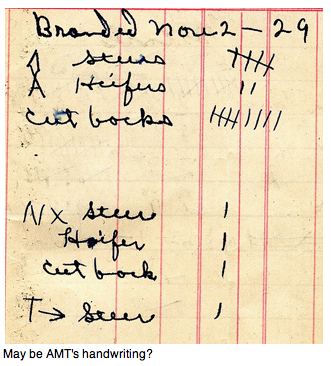 Branded Nov 2 - 29
Steers 卌
A Heifers II
cut backs 卌 IIII
NX Steer I
Heifer I
cut back I
T→ Steer I
May be AMT's handwriting?